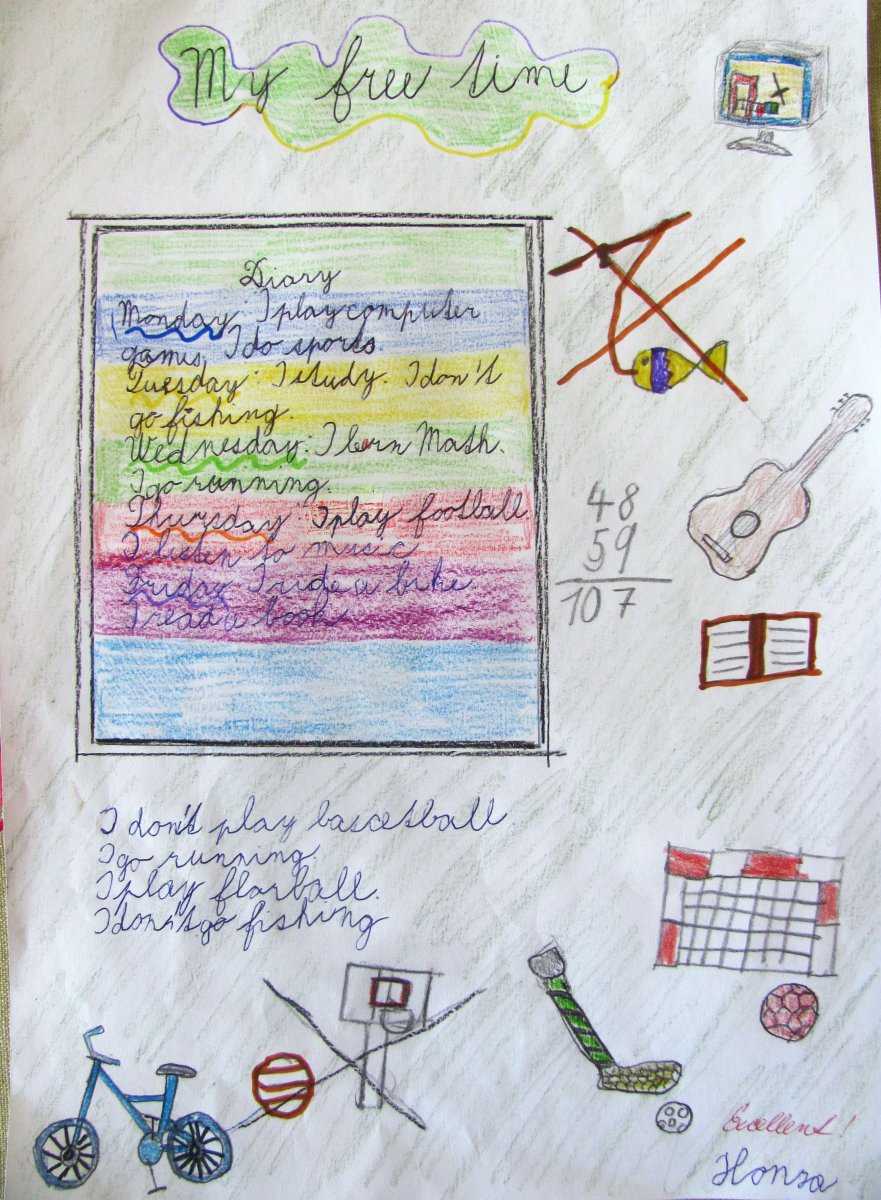 My free time
Diary
Monday: I play computer
games, I do sports.
Tuesday: I study. I don't
go fishing.
Wednesday: I lern Math.
I go running.
Thursday: I play football
I listen to music
Friday I ride a bike
I read a book
48
59
107
I don't play bascetball.
I go running.
I play florball.
I don't go fishing
Excellent!
Honza